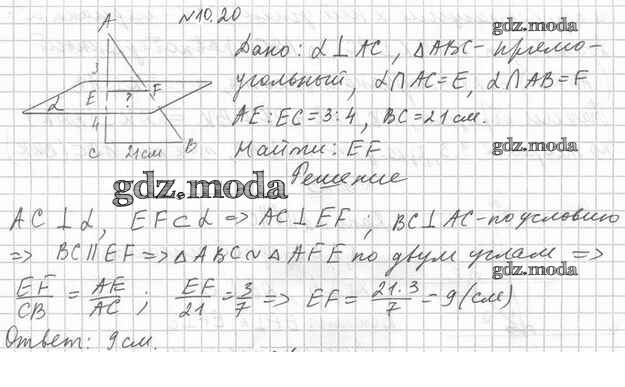 №10.20
gdz.moda
A
Дано: α⊥AC, △ABC - прямо-
угольный, α∩AC=E, α∩AB=F
AE:EC=3:4, BC=21см.
Найти: EF
3
α E ? F
4
C 21см B
gdz.moda
gdz.moda
Решение
gdz.moda
AC⊥α, EF⊂α ⇒ AC⊥EF; BC⊥AC-по условию
⇒ BC∥EF ⇒ △ABC∾△AFE по двум углам ⇒
gdz.moda
EF/CB = AE/AC; EF/21 = 3/7 ⇒ EF = 21·3/7 = 9 (см)
Ответ: 9 см.